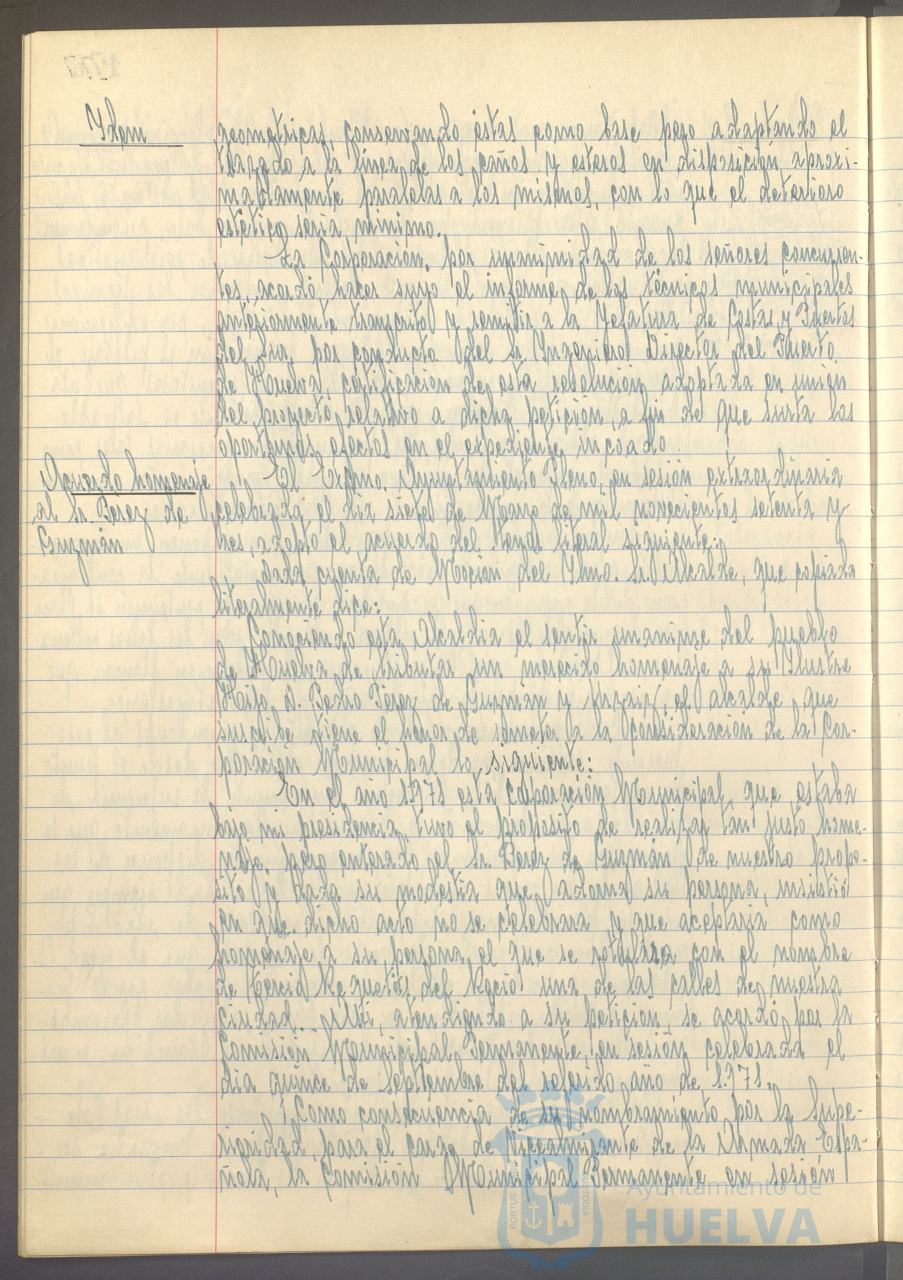 Idem
geometricas, conservando éstas como base pero adaptando el
trazado a la linea de los caños y esteros en disposición aproxi-
madamente paralelas a los mismos, con lo que el deterioro
estético seria minimo.
La Corporación, por unanimidad de los señores concurren-
tes, acordó, hacer suyo el informe de los técnicos municipales
anteriormente transcrito y remitir a la Jefatura de Costas y Puertos
del Sur, por conducto del Sr. Ingeniero Director del Puerto
de Huelva, certificación de esta resolución adoptada en unión
del proyecto relativo a dicha petición, a fin de que surta los
oportunos efectos en el expediente incoado.
Acuerdo homenaje
al Sr. Perez de
Guzmán
El Excmo. Ayuntamiento Pleno, en sesión extraordinaria
celebrada el dia siete de Marzo de mil novecientos setenta y
tres, adoptó el acuerdo del tenor literal siguiente:
Dada cuenta de Moción del Ilmo. Sr. Alcalde, que copiada
literalmente dice:
Conociendo esta Alcaldia el sentir unanime del pueblo
de Huelva de tributar un merecido homenaje a su Ilustre
Hijo, D. Pedro Pérez de Guzmán y Urzaiz, el alcalde que
suscribe tiene el honor de someter a la consideración de la Cor-
poración Municipal lo siguiente:
En el año 1.971 esta Corporación Municipal, que estaba
bajo mi presidencia, tuvo el proposito de realizar tan justo home-
naje, pero enterado el Sr. Perez de Guzmán de nuestro propo-
sito y dada su modestia que adorna su persona, insistió
en que dicho acto no se celebrara y que aceptaria como
homenaje a su persona el que se rotulara con el nombre
de Tercio Requetés del Rocio una de las calles de nuestra
Ciudad. Asi, atendiendo a su petición se acordó por la
Comisión Municipal Permanente, en sesión celebrada el
dia quince de Septiembre del referido año de 1.971.
Como consecuencia de su nombramiento por la Supe-
rioridad, para el cargo de Vicealmirante de la Armada Espa-
ñola, la Comisión Municipal Permanente en sesión
Ayuntamiento de
HUELVA